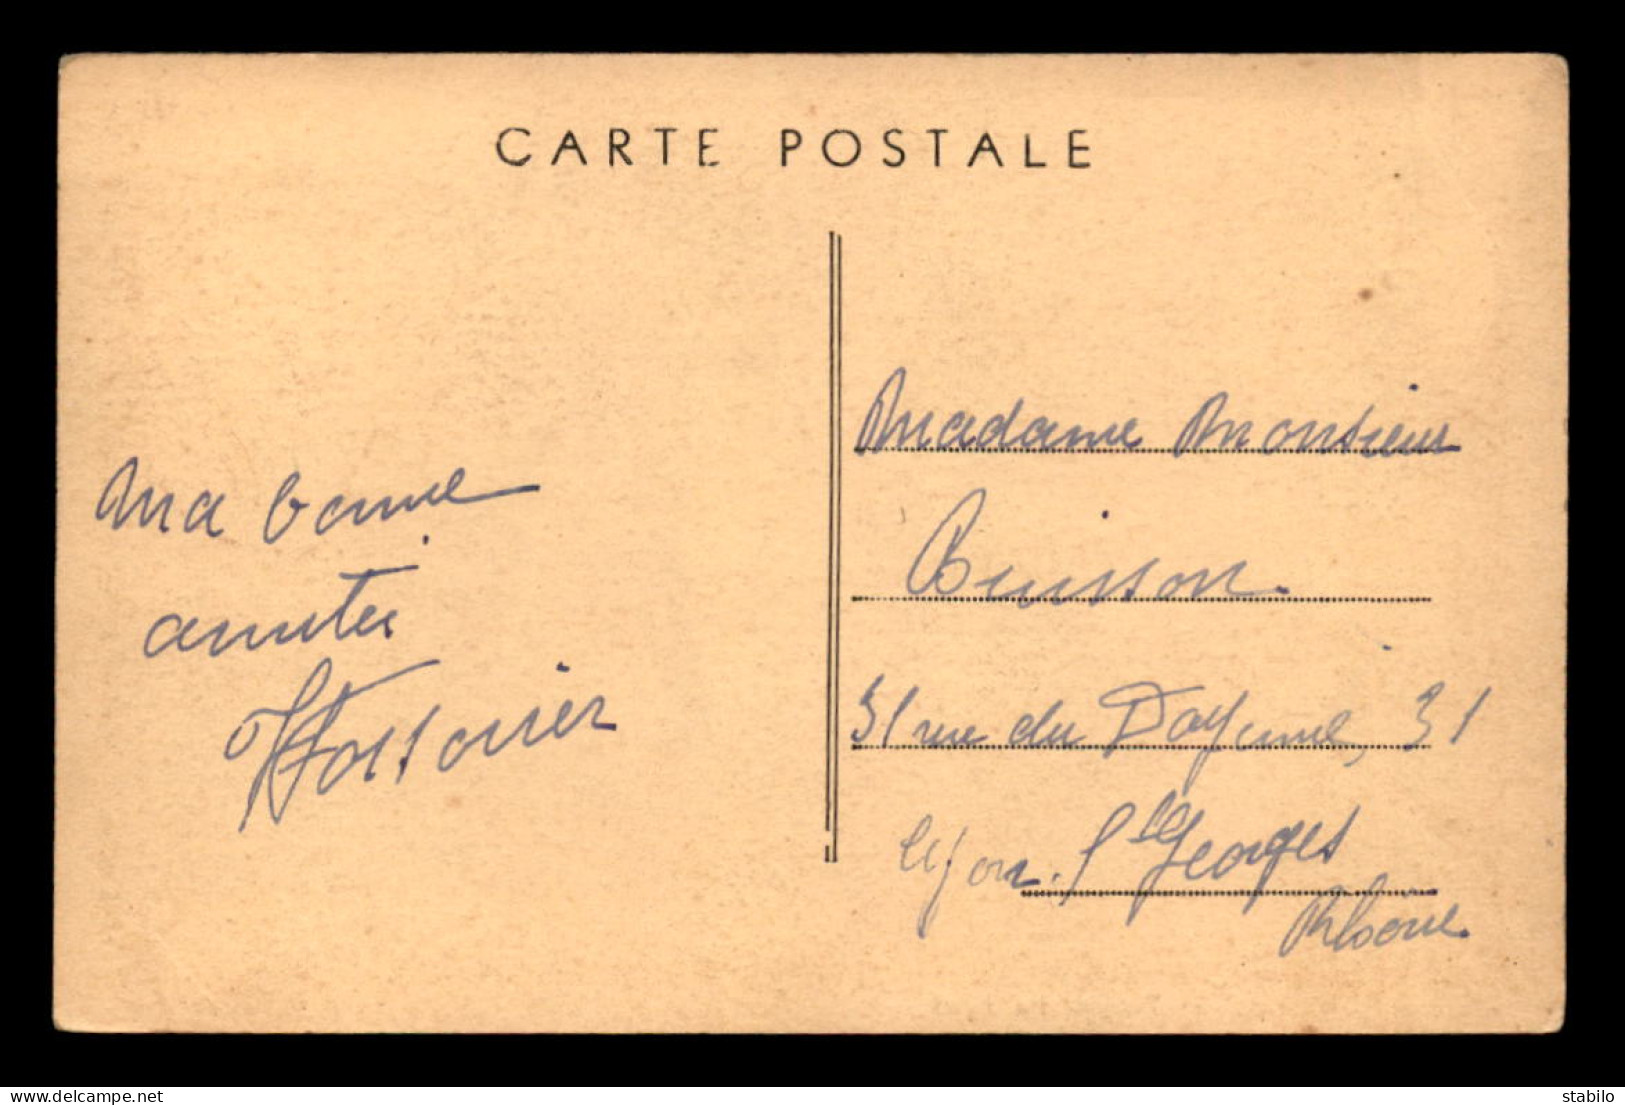 CARTE POSTALE
Ma bonne
amitié
Madame Monsieur
Buisson.
31 rue du Doyenné, 31
Lyon. St Georges
Rhône.
delcampe.net
stabilo